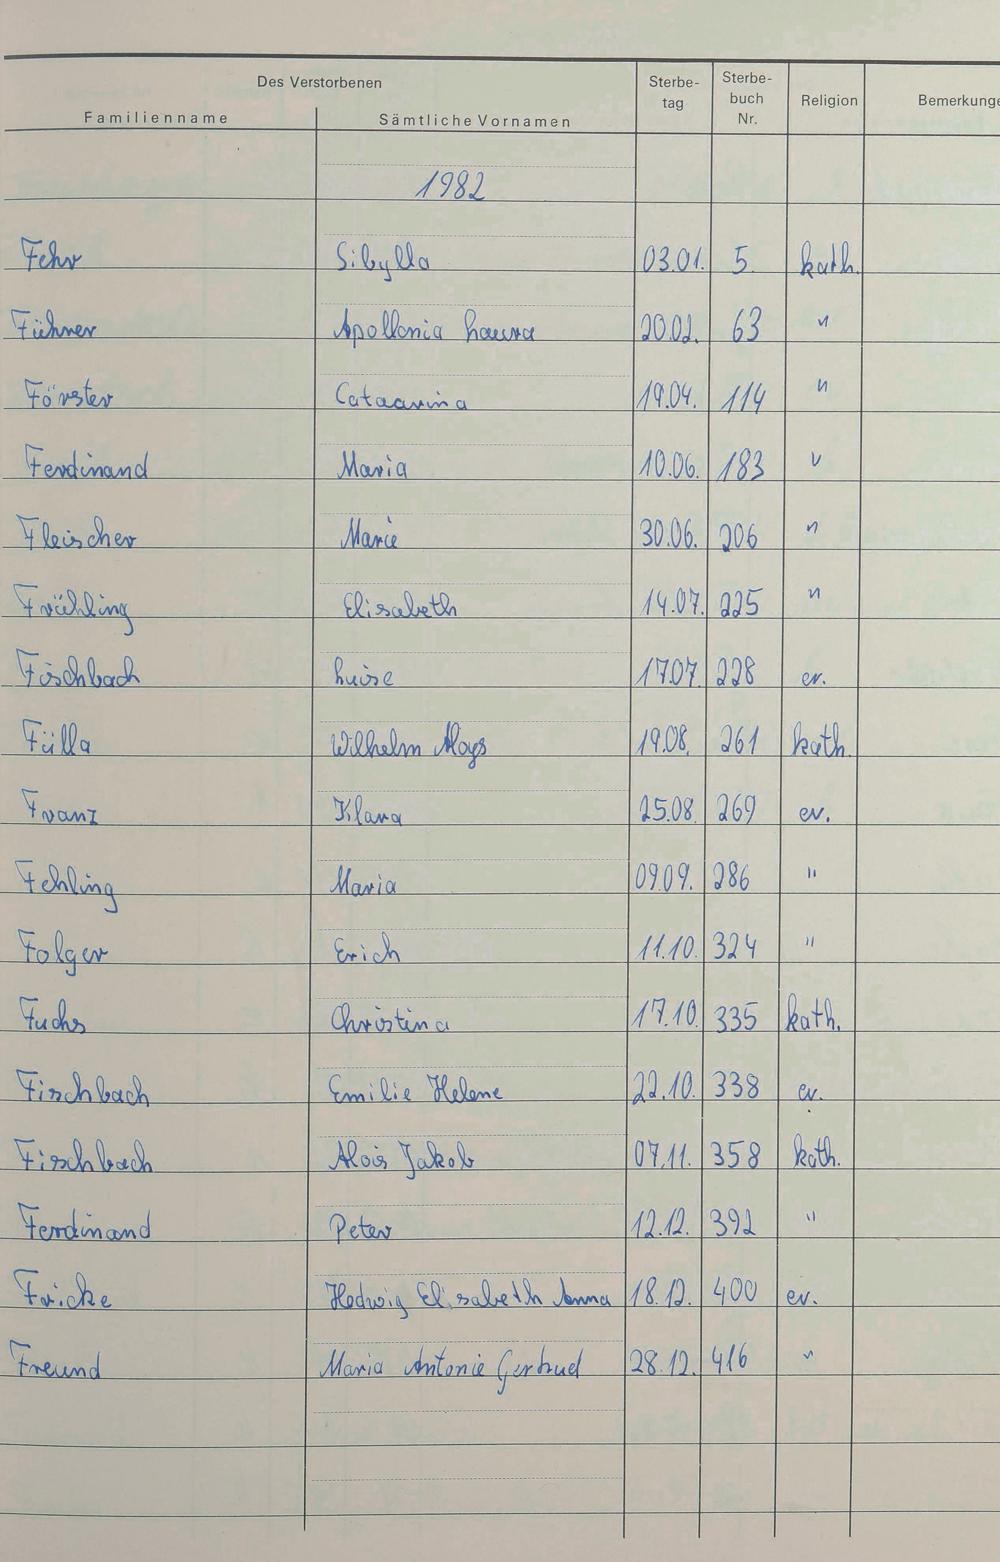 Des Verstorbenen
Familienname Sämtliche Vornamen Sterbe-tag Sterbe-buch Nr. Religion Bemerkunge
1982
Fehr Sibylla 03.01. 5 kath.
Führer Apollonia Laura 20.02. 63 "
Förster Cataarina 19.04. 114 "
Ferdinand Maria 10.06. 183 "
Fleischer Marie 30.06. 206 "
Frühling Elisabeth 14.07. 225 "
Fischbach Luise 17.07. 228 ev.
Fülla Wilhelm Aloys 19.08. 261 kath.
Franz Klara 25.08. 269 ev.
Fehling Maria 09.09. 286 "
Folger Erich 11.10. 324 "
Fuchs Christina 17.10. 335 kath.
Fischbach Emilie Helene 22.10. 338 ev.
Fischbach Alois Jakob 07.11. 358 kath.
Ferdinand Peter 12.12. 392 "
Fricke Hedwig Elisabeth Anna 18.12. 400 ev.
Freund Maria Antonie Gertrud 28.12. 416 "